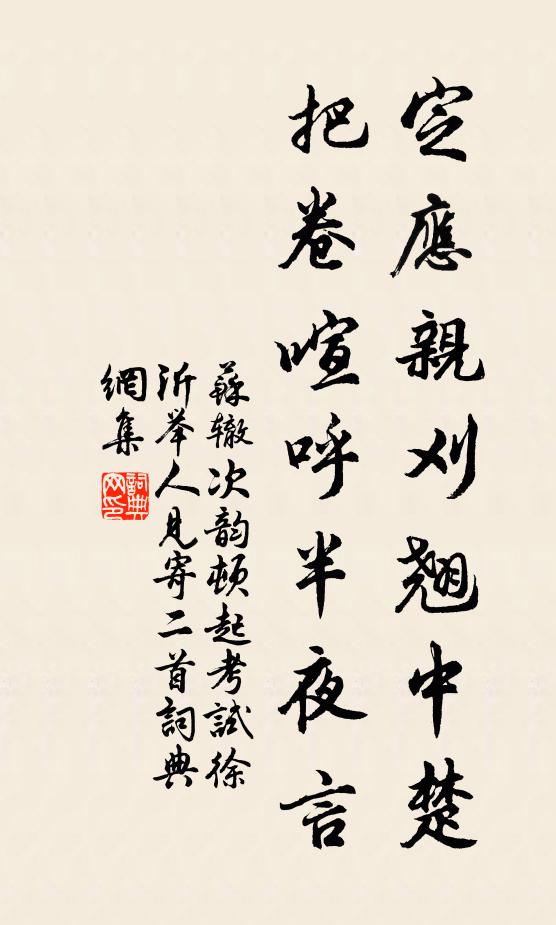 定應親刈翹中楚
把卷喧呼半夜言
蘇轍次韵頓起考試徐
沂举人見寄二首詞典
網集
詞典网印